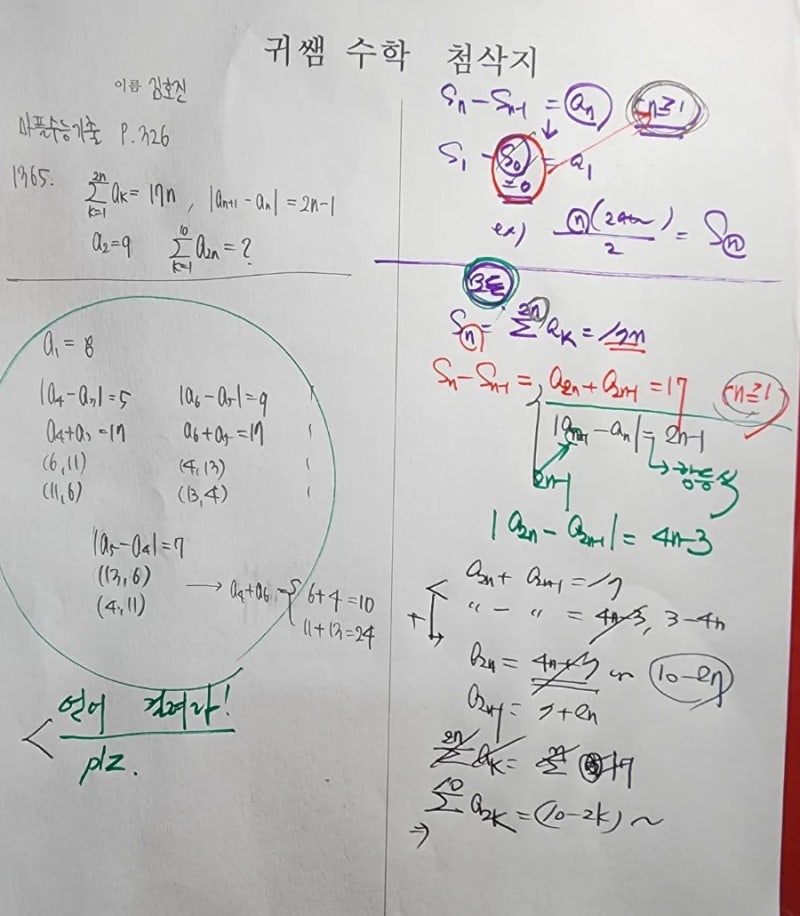 귀쌤 수학 첨삭지
이름 김호진
마플수능기출 P.326
1365. \sum_{k=1}^{2n} a_k = 17n , |a_{n+1} - a_n| = 2n-1
a_2=9 \sum_{k=1}^{10} a_{2n} = ?
a_1 = 8
|a_4 - a_3| = 5 |a_6 - a_5| = 9
a_4+a_3 = 17 a_6+a_5 = 17
(6, 11) (4, 13)
(11, 6) (13, 4)
|a_5 - a_4| = 7
(13, 6)
(4, 11)
→ a_4+a_6 = { 6+4 = 10
11+13 = 24
언어 길러라!
plz.
S_n - S_{n-1} = a_n n≥1
S_1 - S_0 = a_1
=0
ex) = S_n
2
S_n = \sum^{2n} a_k = 17n
S_n - S_{n-1} = a_{2n} + a_{2n-1} = 17 n≥1
- a_n| = 2n-1
2n-1 → 항등식
|a_{2n} - a_{2n-1}| = 4n-3
a_{2n} + a_{2n-1} = 17
+ 〃 - 〃 = 4n-3, 3-4n
a_{2n} = or 10-2n
a_{2n-1} = 7+2n
\sum^{2n} a_k =
⇒ \sum^{10} a_{2k} = (10-2k) ~